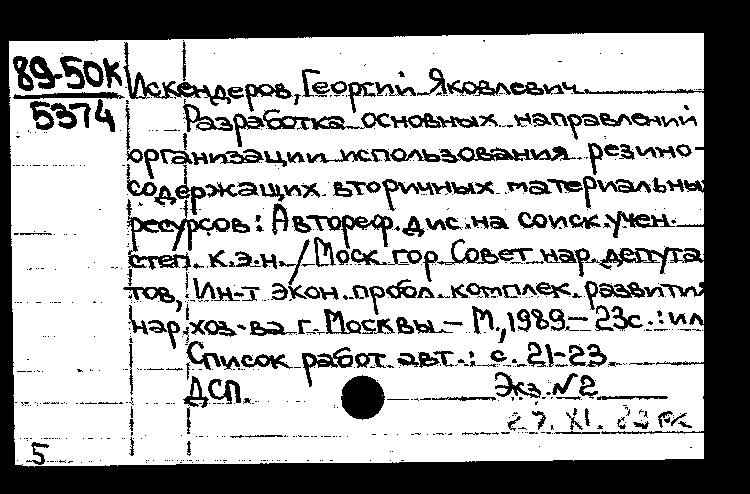 89-50К
5374
Искендеров, Георгий Яковлевич.
Разработка основных направлений
организации использования резино-
содержащих вторичных материальны
ресурсов: Автореф. дис. на соиск. учен.
степ. к.э.н. / Моск. гор. Совет нар. депута
тов, Ин-т экон. пробл. комплек. развития
нар. хоз-ва г. Москвы. – М., 1989. – 23с.: ил
Список работ авт.: с. 21-23.
ДСП. Экз. №2
XI.
5